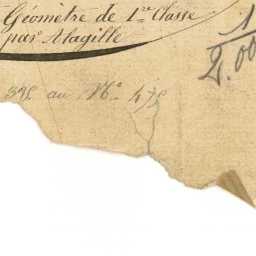 Géomètre de 1.re Classe
par Magille
1
2.00
395 au N.o 475